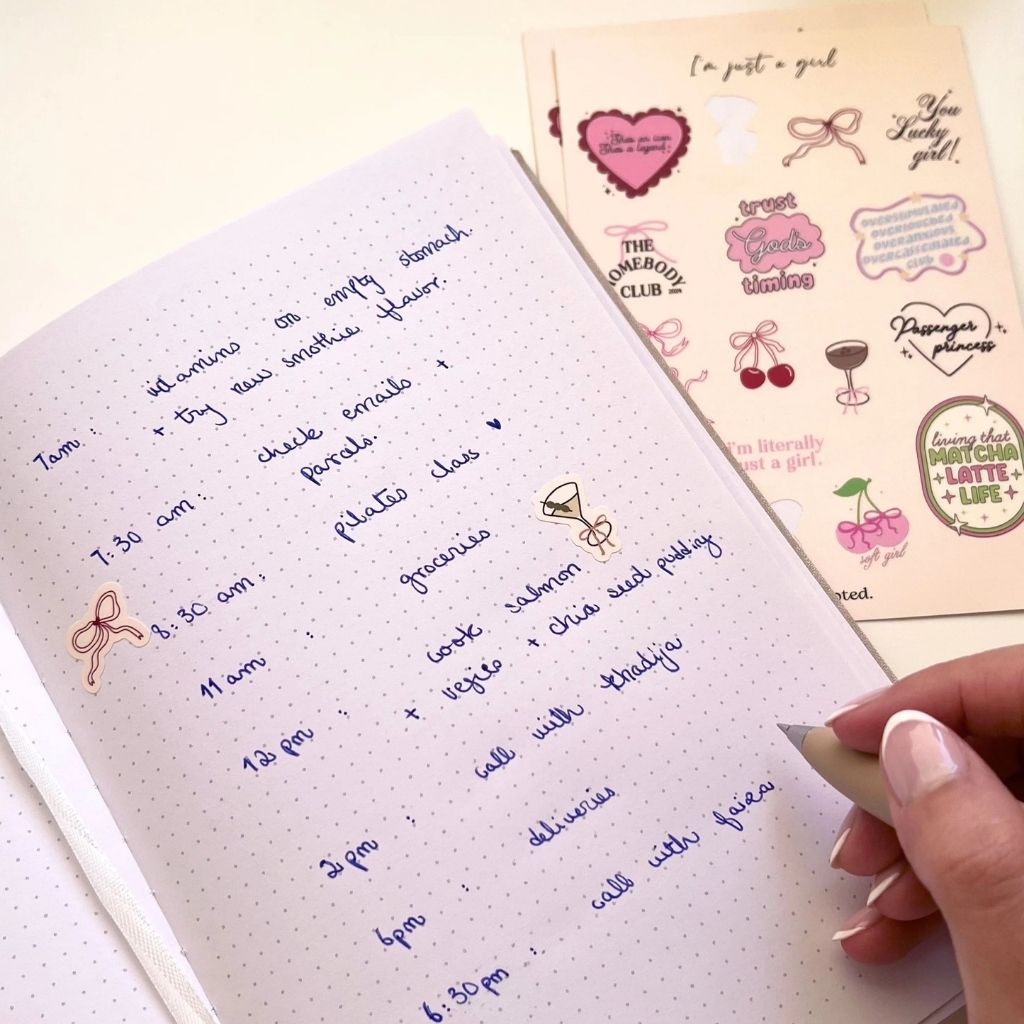 7am : vitamins on empty stomach.
+ try new smothie flavor.
7:30 am : check emails +
parcels.
8:30 am : pilates class ♥
11 am : groceries
12 pm : cook salmon
+ vegies + chia seed pudding
2 pm : call with khadija
6pm : deliveries
6:30 pm : call with faiza
I'm just a girl
She's an icon
She's a legend
You
Lucky
girl!
THE
HOMEBODY
CLUB
trust
God's
timing
OVERSTIMULATED
OVERLOVED
OVERANXIOUS
OVERCAFFEINATED
CLUB
Passenger
princess
I'm literally
just a girl.
living that
MATCHA
LATTE
LIFE
soft girl